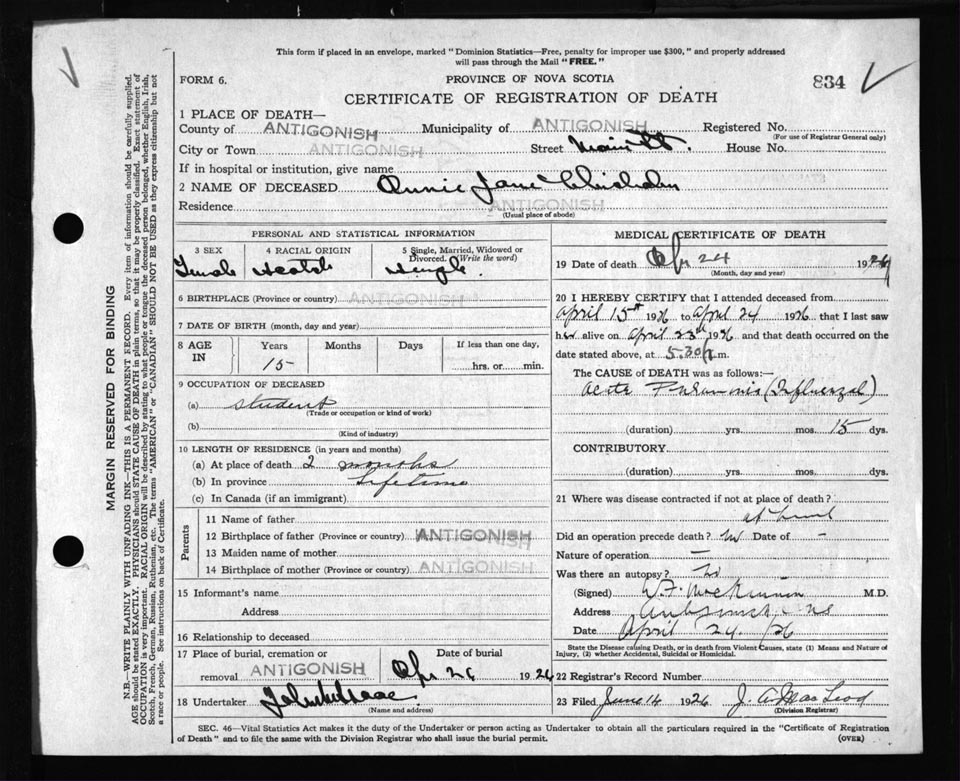 This form if placed in an envelope, marked "Dominion Statistics—Free, penalty for improper use $300," and properly addressed
will pass through the Mail "FREE."
FORM 6.
PROVINCE OF NOVA SCOTIA
834
CERTIFICATE OF REGISTRATION OF DEATH
1 PLACE OF DEATH—
County of ANTIGONISH Municipality of ANTIGONISH Registered No.
(For use of Registrar General only)
City or Town ANTIGONISH Street Main St. House No.
If in hospital or institution, give name
2 NAME OF DECEASED Annie Jane Chisholm
Residence ANTIGONISH
(Usual place of abode)
PERSONAL AND STATISTICAL INFORMATION
3 SEX 4 RACIAL ORIGIN 5 Single, Married, Widowed or
Divorced. (Write the word)
Female Scotch Single.
6 BIRTHPLACE (Province or country) ANTIGONISH
7 DATE OF BIRTH (month, day and year)
8 AGE IN Years Months Days If less than one day,
15 hrs. or min.
9 OCCUPATION OF DECEASED
(a) student
(Trade or occupation or kind of work)
(b)
(Kind of industry)
10 LENGTH OF RESIDENCE (in years and months)
(a) At place of death 2 months
(b) In province Lifetime
(c) In Canada (if an immigrant)
Parents
11 Name of father
12 Birthplace of father (Province or country) ANTIGONISH
13 Maiden name of mother
14 Birthplace of mother (Province or country) ANTIGONISH
15 Informant's name
Address
16 Relationship to deceased
17 Place of burial, cremation or Date of burial
removal ANTIGONISH Apr 26 1926
18 Undertaker
(Name and address)
MEDICAL CERTIFICATE OF DEATH
19 Date of death Apr 24 1926
(Month, day and year)
20 I HEREBY CERTIFY that I attended deceased from
April 15th 1926 to April 24 1926 that I last saw
her alive on April 23th 1926 and that death occurred on the
date stated above, at 5.30 p.m.
The CAUSE of DEATH was as follows:—
Acute Pneumonia (Influenzal)
(duration) yrs. mos. 15 dys.
CONTRIBUTORY
(duration) yrs. mos. dys.
21 Where was disease contracted if not at place of death?
Did an operation precede death? No Date of –
Nature of operation –
Was there an autopsy? No
(Signed) W. F. McKinnon M.D.
Address Antigonish NS
Date April 24. /26
State the Disease causing Death, or in death from Violent Causes, state (1) Means and Nature of
Injury, (2) whether Accidental, Suicidal or Homicidal.
22 Registrar's Record Number
23 Filed June 14 1926 J. A. MacLeod
(Division Registrar)
SEC. 46—Vital Statistics Act makes it the duty of the Undertaker or person acting as Undertaker to obtain all the particulars required in the "Certificate of Registration
of Death" and to file the same with the Division Registrar who shall issue the burial permit.
(OVER)
MARGIN RESERVED FOR BINDING
N.B.—WRITE PLAINLY WITH UNFADING INK—THIS IS A PERMANENT RECORD. Every item of information should be carefully supplied.
AGE should be stated EXACTLY. PHYSICIANS should STATE CAUSE OF DEATH in plain terms, so that it may be properly classified. Exact statement of
OCCUPATION is very important. RACIAL ORIGIN will be described by stating to what people or tongue the deceased person belonged, whether English, Irish,
Scotch, French, German, Russian, Ruthenian, etc. The terms "AMERICAN" or "CANADIAN" SHOULD NOT BE USED as they express citizenship but not
a race or people. See instructions on back of Certificate.